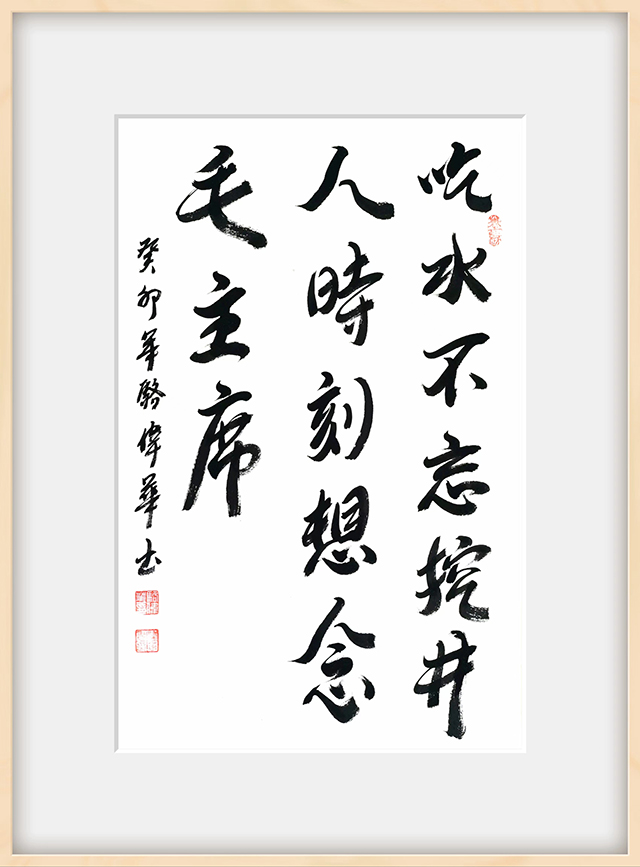 吃水不忘挖井
人時刻想念
毛主席
癸卯年駱偉華书